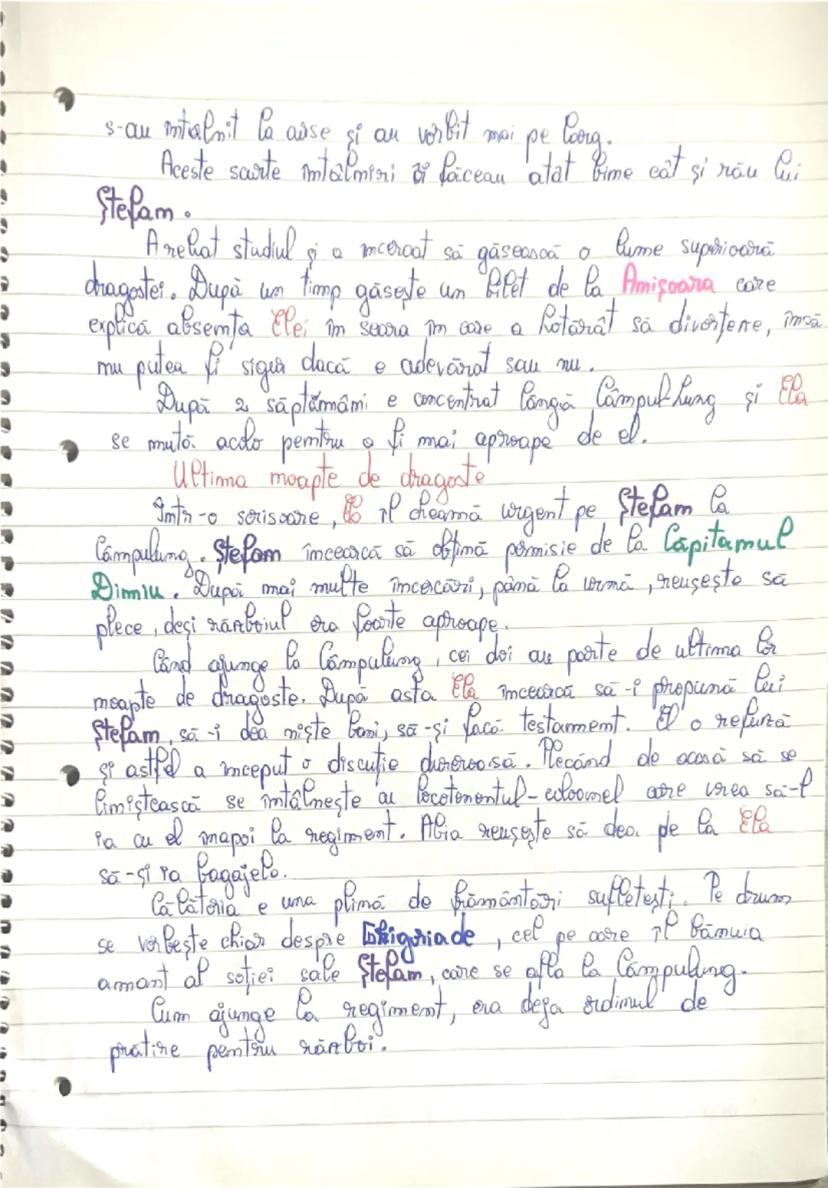 s-au întâlnit la curse și au vorbit mai pe larg.
Aceste scurte întâlniri îi făceau atât bine cât și rău lui
Ștefan.
A reluat studiul și a încercat să găsească o lume superioară
dragostei. După un timp găsește un bilet de la Anișoara care
explică absența Elei în seara în care a hotărât să divorțeze, însă
nu putea fi sigur dacă e adevărat sau nu.
După 2 săptămâni e concentrat lângă Câmpul-Lung și Ela
se mută acolo pentru a fi mai aproape de el.
Ultima noapte de dragoste
Într-o scrisoare, Ela îl cheamă urgent pe Ștefan la
Câmpulung. Ștefan încearcă să obțină permisie de la Căpitanul
Dimiu. După mai multe încercări, până la urmă, reușește să
plece, deși războiul era foarte aproape.
Când ajunge la Câmpulung, cei doi au parte de ultima lor
noapte de dragoste. După asta Ela încearcă să-i propună lui
Ștefan, să-i dea niște bani, să-și facă testament. El o refuză
și astfel a început o discuție dureroasă. Plecând de acasă să se
liniștească se întâlnește cu locotenentul-colonel care vrea să-l
ia cu el înapoi la regiment. Abia reușește să dea pe la Ela
să-și ia bagajele.
Călătoria e una plină de frământări sufletești. Pe drum
se vorbește chiar despre Grigoriade, cel pe care îl bănuia
amant al soției sale Ștefan, care se afla la Câmpulung.
Cum ajunge la regiment, era deja ordinul de
pornire pentru război.